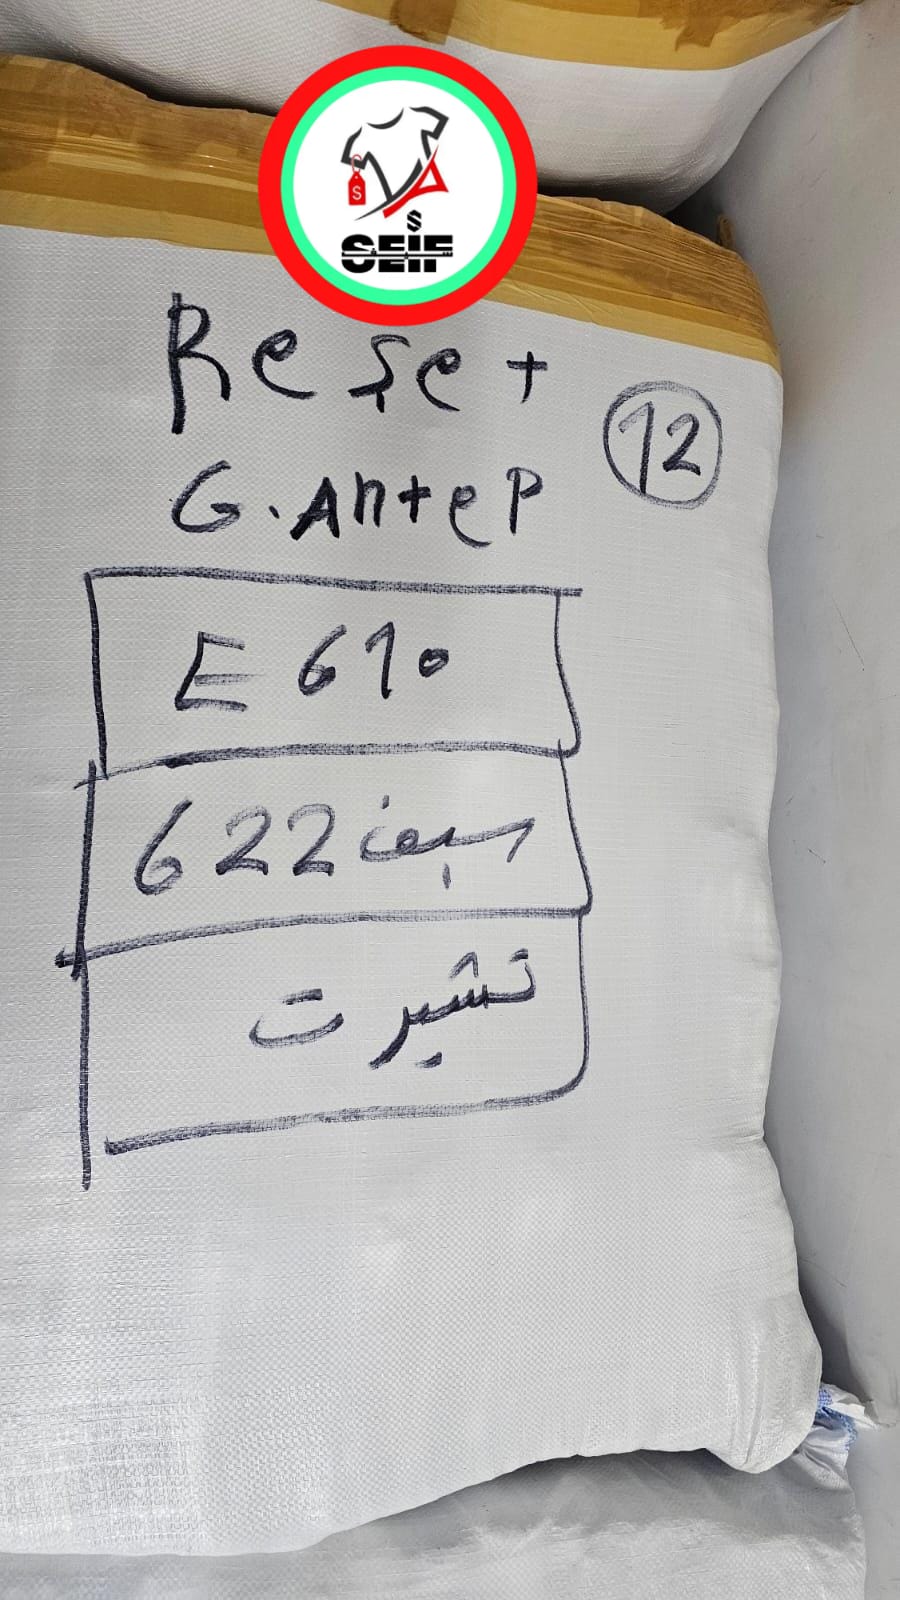 SEIF
Reşet
12
G.Antep
E 610
سيف 622
تشيرت